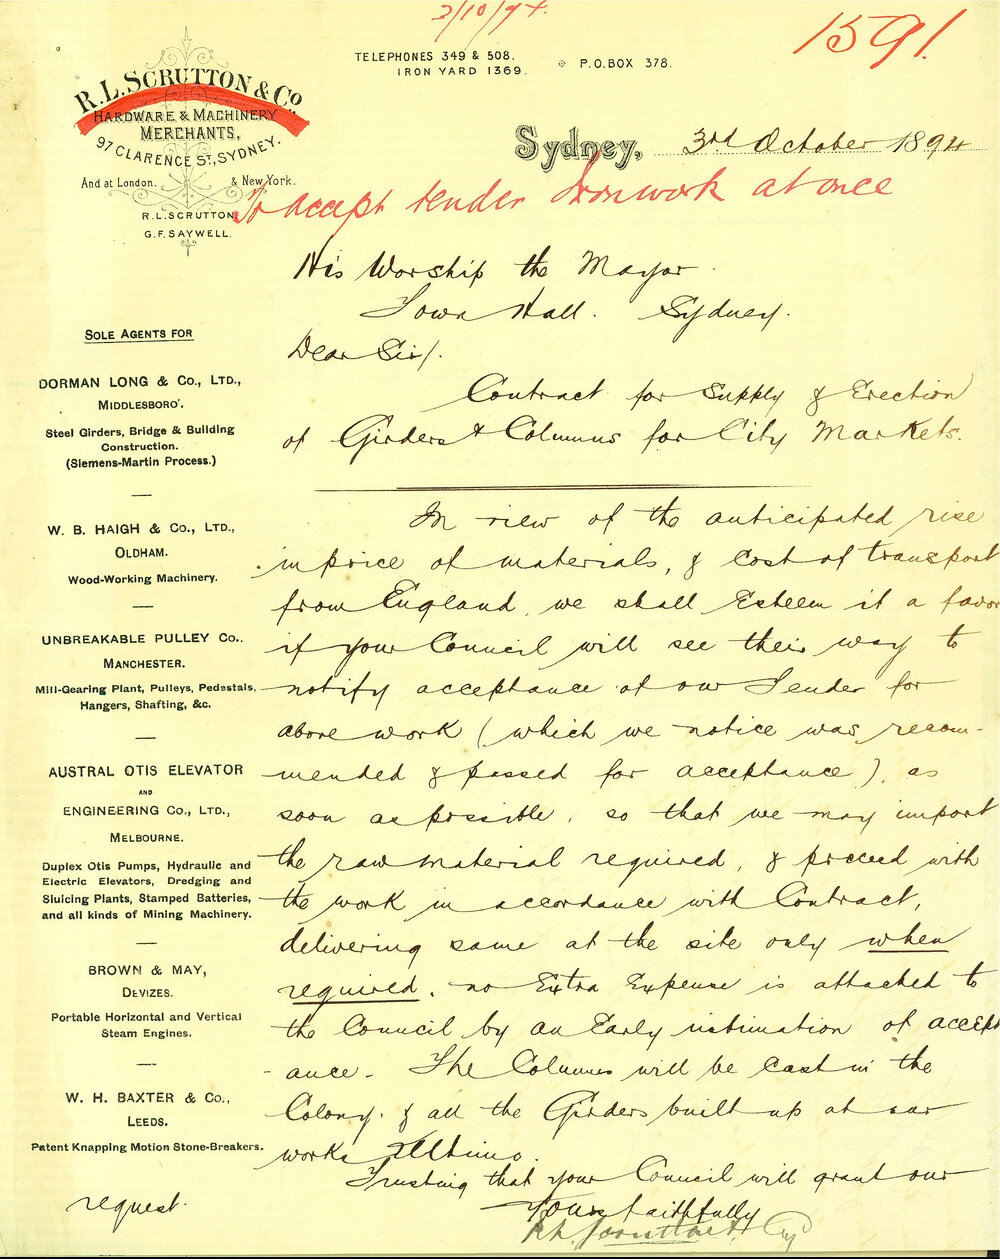 3/10/94.
1591.
TELEPHONES 349 & 508.
IRON YARD 1369.
P.O. BOX 378.
R.L. SCRUTTON & Co
HARDWARE & MACHINERY
MERCHANTS,
97 CLARENCE ST, SYDNEY.
And at London. & New York.
R. L. SCRUTTON
G. F. SAYWELL.
Sydney, 3rd October 1894
To accept tender Ironwork at once
His Worship the Mayor.
Town Hall. Sydney.
Dear Sir/.
Contract for Supply & Erection
of Girders & Columns for City Markets.
In view of the anticipated rise
in price of materials, & cost of transport
from England, we shall Esteem it a favor
if your Council will see their way to
notify acceptance of our Tender for
above work (which we notice was recom-
mended & passed for acceptance), as
soon as possible, so that we may import
the raw material required, & proceed with
the work in accordance with Contract,
delivering same at the site only when
required. no Extra Expense is attached to
the Council by an Early intimation of accept
-ance. The Columns will be cast in the
Colony. & all the Girders built up at our
works
Trusting that your Council will grant our
request.
Yours faithfully
R. L. Scrutton & Co
SOLE AGENTS FOR
DORMAN LONG & CO., LTD.,
MIDDLESBORO'.
Steel Girders, Bridge & Building
Construction.
(Siemens-Martin Process.)
W. B. HAIGH & CO., LTD.,
OLDHAM.
Wood-Working Machinery.
UNBREAKABLE PULLEY CO.
MANCHESTER.
Mill-Gearing Plant, Pulleys, Pedestals,
Hangers, Shafting, &c.
AUSTRAL OTIS ELEVATOR
AND
ENGINEERING CO., LTD.,
MELBOURNE.
Duplex Otis Pumps, Hydraulic and
Electric Elevators, Dredging and
Sluicing Plants, Stamped Batteries,
and all kinds of Mining Machinery.
BROWN & MAY,
DEVIZES.
Portable Horizontal and Vertical
Steam Engines.
W. H. BAXTER & CO.,
LEEDS.
Patent Knapping Motion Stone-Breakers.